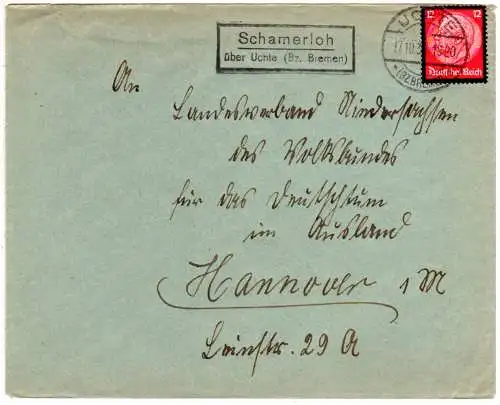 Schamerloh
über Uchte (Bz. Bremen)
UCHTE
17.10.3
15-20
* (BZ. BREMEN)
12 12
Deutsches Reich
An
Landesverband Niedersachsen
des Volksbundes
für das Deutschtum
im Ausland
Hannover 1 M
Leinstr. 29 A